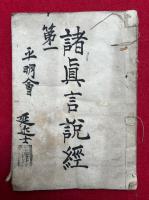 諸眞言説經
第一
平明會